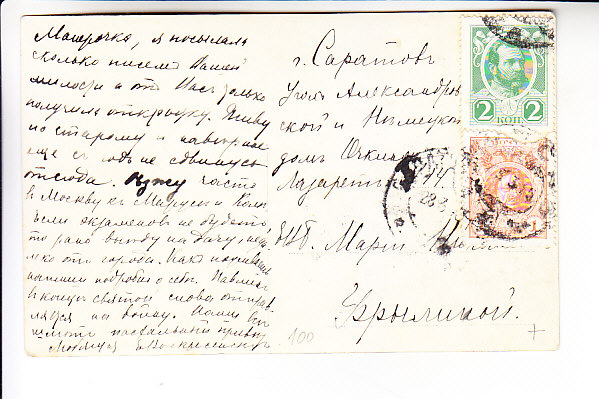 Марочка, я посылала
сколько писем Вашей
милости а от Вас только
получила открытку. Живу
по старому и наверное
еще с годъ не сдвинусь
отсюда. Езжу часто
в Москву к Марусе и Коле
Если экзаменов не будетъ,
то рано выеду на дачу
от города. Как поживаешь
напиши подробно о себе. Павлик
в конце святой снова отправ
ляется на войну. Наши Вам
шлют пасхальный привет
г. Саратовъ
Уголъ Александров
ской и Немецкой
домъ Очкина
Лазаретъ №4.
ЕВБ. Марии
Крылиной.
2
2
КОП.
100